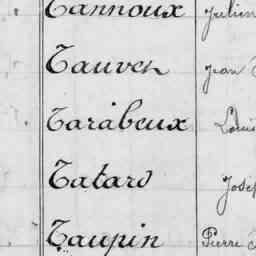 Tannoux Julien
Tauven Jean
Tarabeux Louis
Tatard Josep
Taupin Pierre